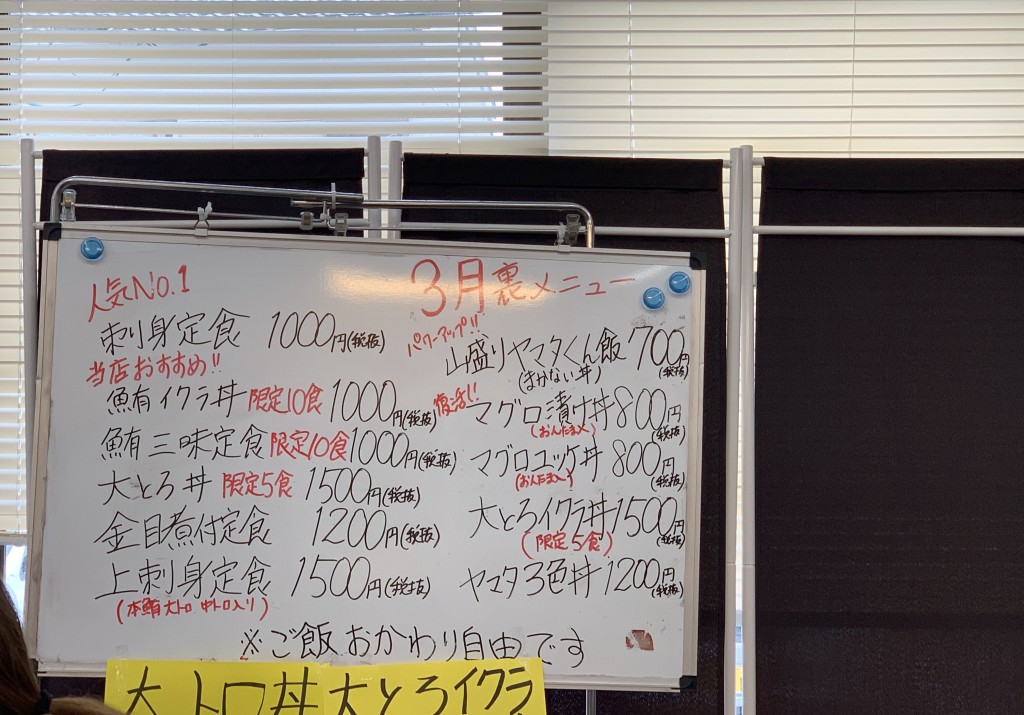 人気No.1
刺身定食 1000円(税抜)
当店おすすめ!!
鮪イクラ丼 限定10食 1000円(税抜)
鮪三昧定食 限定10食 1000円(税抜)
大とろ丼 限定5食 1500円(税抜)
金目煮付定食 1200円(税抜)
上刺身定食 1500円(税抜)
(本鮪大トロ 中トロ入り)
3月裏メニュー
パワーアップ!!
山盛りヤマタくん飯 700円(税抜)
(まかない丼)
復活!!
マグロ漬け丼 800円(税抜)
(おんたま入)
マグロユッケ丼 800円(税抜)
(おんたま入)
大とろイクラ丼 1500円(税抜)
(限定5食)
ヤマタ3色丼 1200円(税抜)
※ご飯おかわり自由です
大トロ丼 大とろイクラ